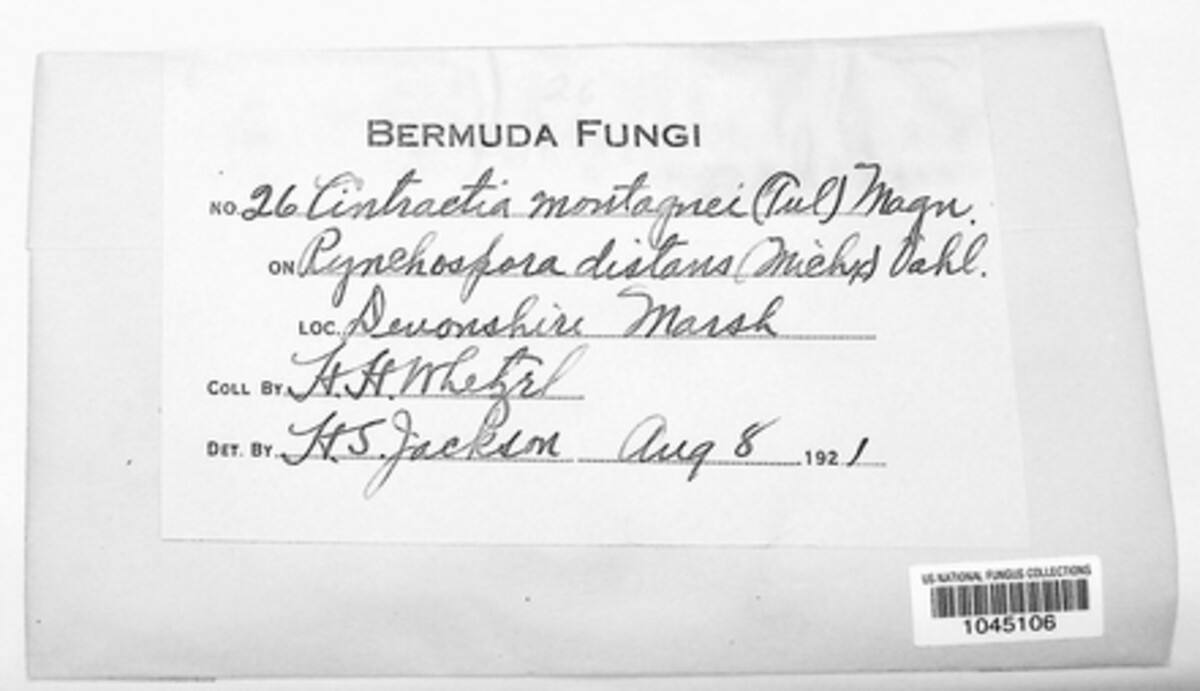 BERMUDA FUNGI
NO. 26 Cintractia montagnei (Tul) Magn.
ON Rynchospora distans (Michx) Vahl.
LOC. Devonshire Marsh
COLL BY. H. H. Whetzel
DET. BY. H. S. Jackson Aug 8 1921
US NATIONAL FUNGUS COLLECTIONS
1045106